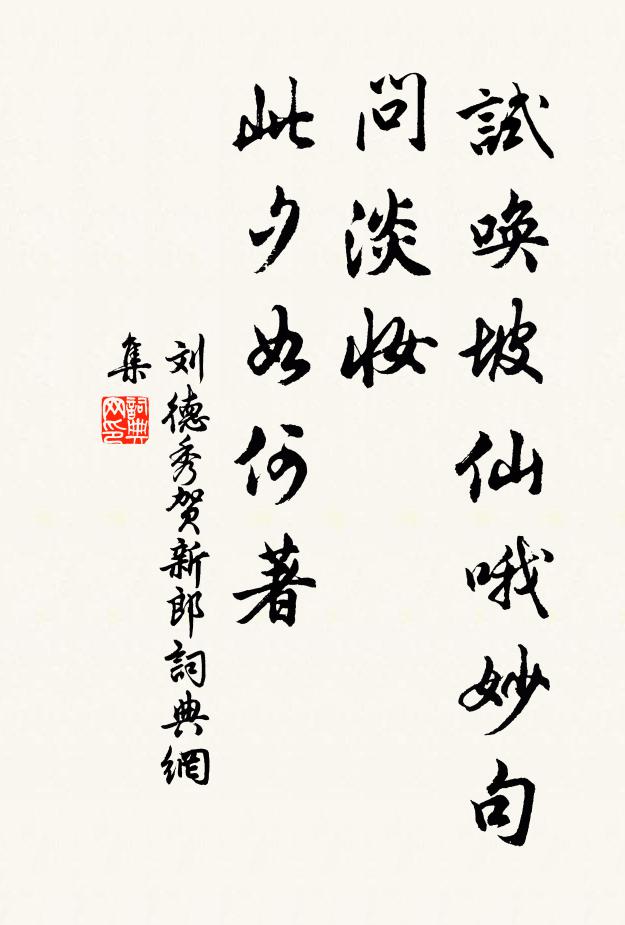 試唤坡仙哦妙句
問淡妝
此夕如何著
刘德秀贺新郎詞典網
集
詞典网印